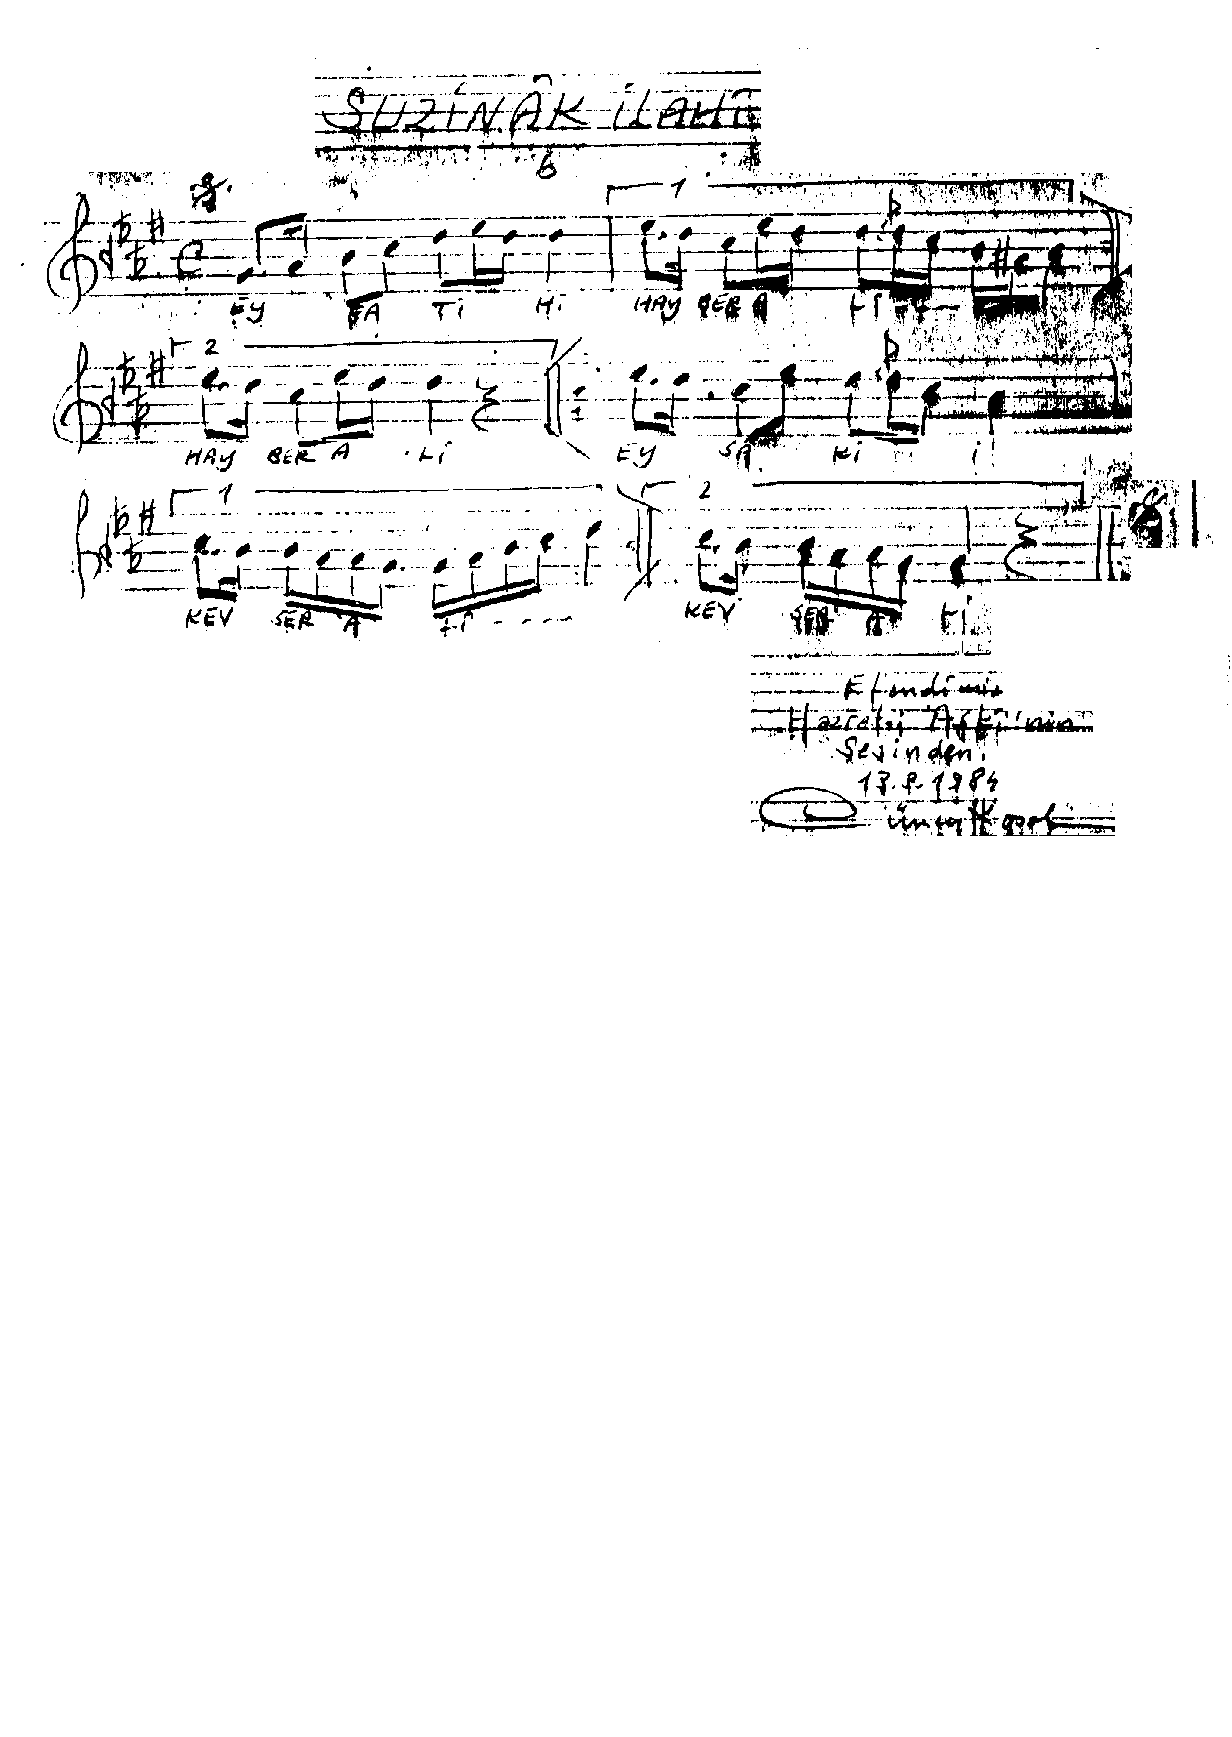 SUZİNÂK İLAHİ
6
1
EY FA Tİ Hİ HAY BER A Lİ
2
HAY BER A Lİ EY SA Kİ İ
1 2
KEV SER A Lİ - - - - KEV SER A Lİ
Efendimiz
Hazreti
Sesinden.
1984